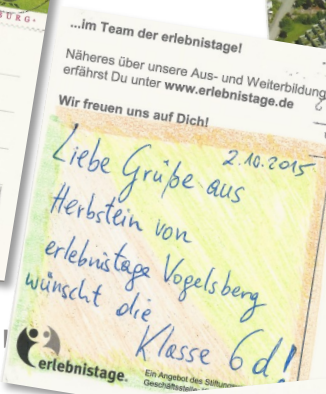 BURG·
...im Team der erlebnistage!
Näheres über unsere Aus- und Weiterbildung
erfährst Du unter www.erlebnistage.de
Wir freuen uns auf Dich!
2.10.2015
Liebe Grüße aus
Herbstein von
erlebnistage Vogelsberg
wünscht die
Klasse 6d!
erlebnistage.
Ein Angebot des Stiftung
Geschäftsstelle